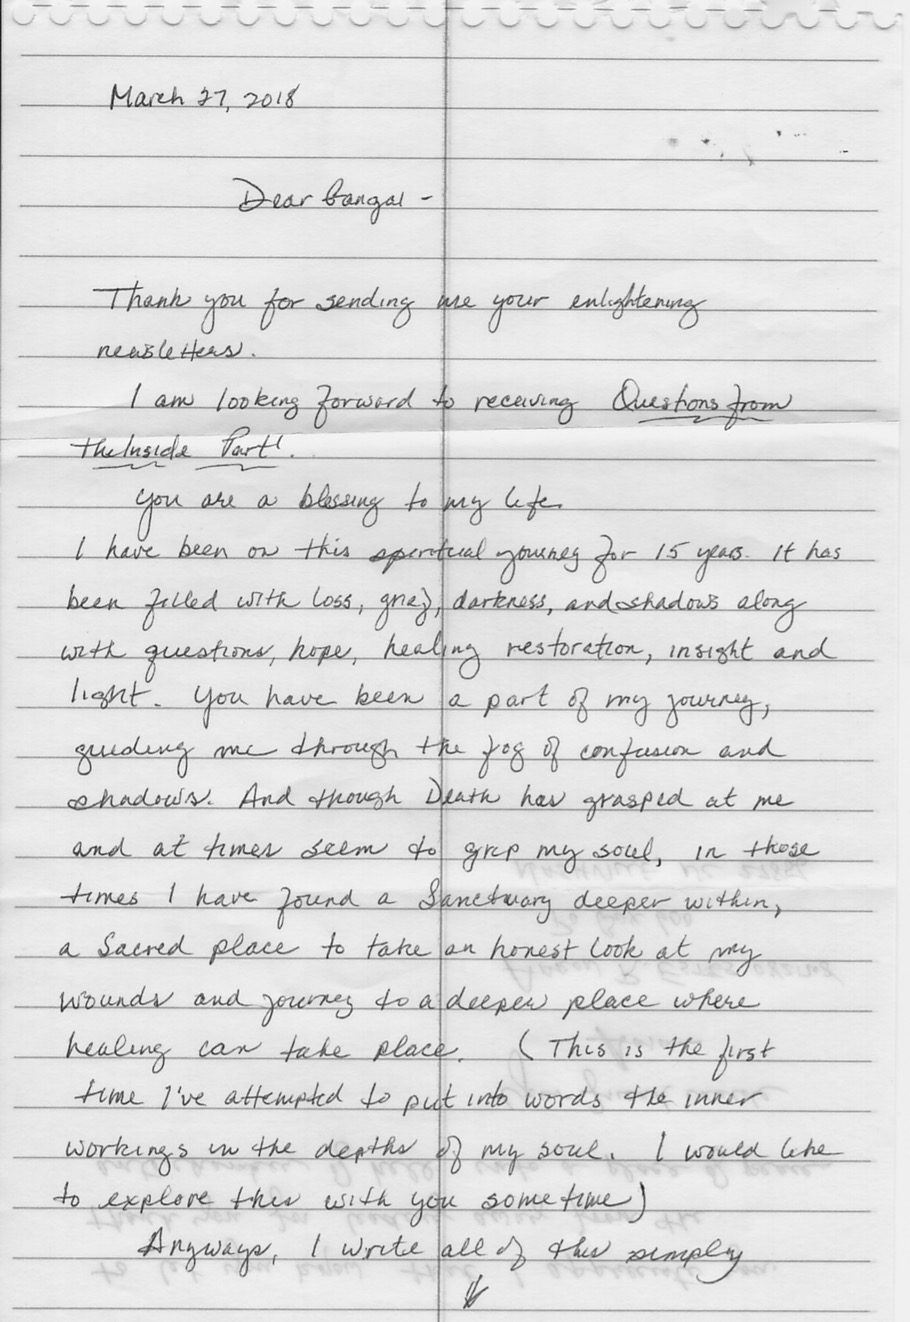 March 27, 2018
Dear Gangai -
Thank you for sending me your enlightening
newsletters.
I am looking forward to receiving Questions from
the Inside Part I.
You are a blessing to my life.
I have been on this spiritual journey for 15 years. It has
been filled with loss, grief, darkness, and shadows along
with questions, hope, healing restoration, insight and
light. You have been a part of my journey,
guiding me through the fog of confusion and
shadows. And though Death has grasped at me
and at times seem to grip my soul, in those
times I have found a Sanctuary deeper within,
a Sacred place to take an honest look at my
wounds and journey to a deeper place where
healing can take place. (This is the first
time I've attempted to put into words the inner
workings in the depths of my soul. I would like
to explore this with you sometime)
Anyways, I write all of this simply